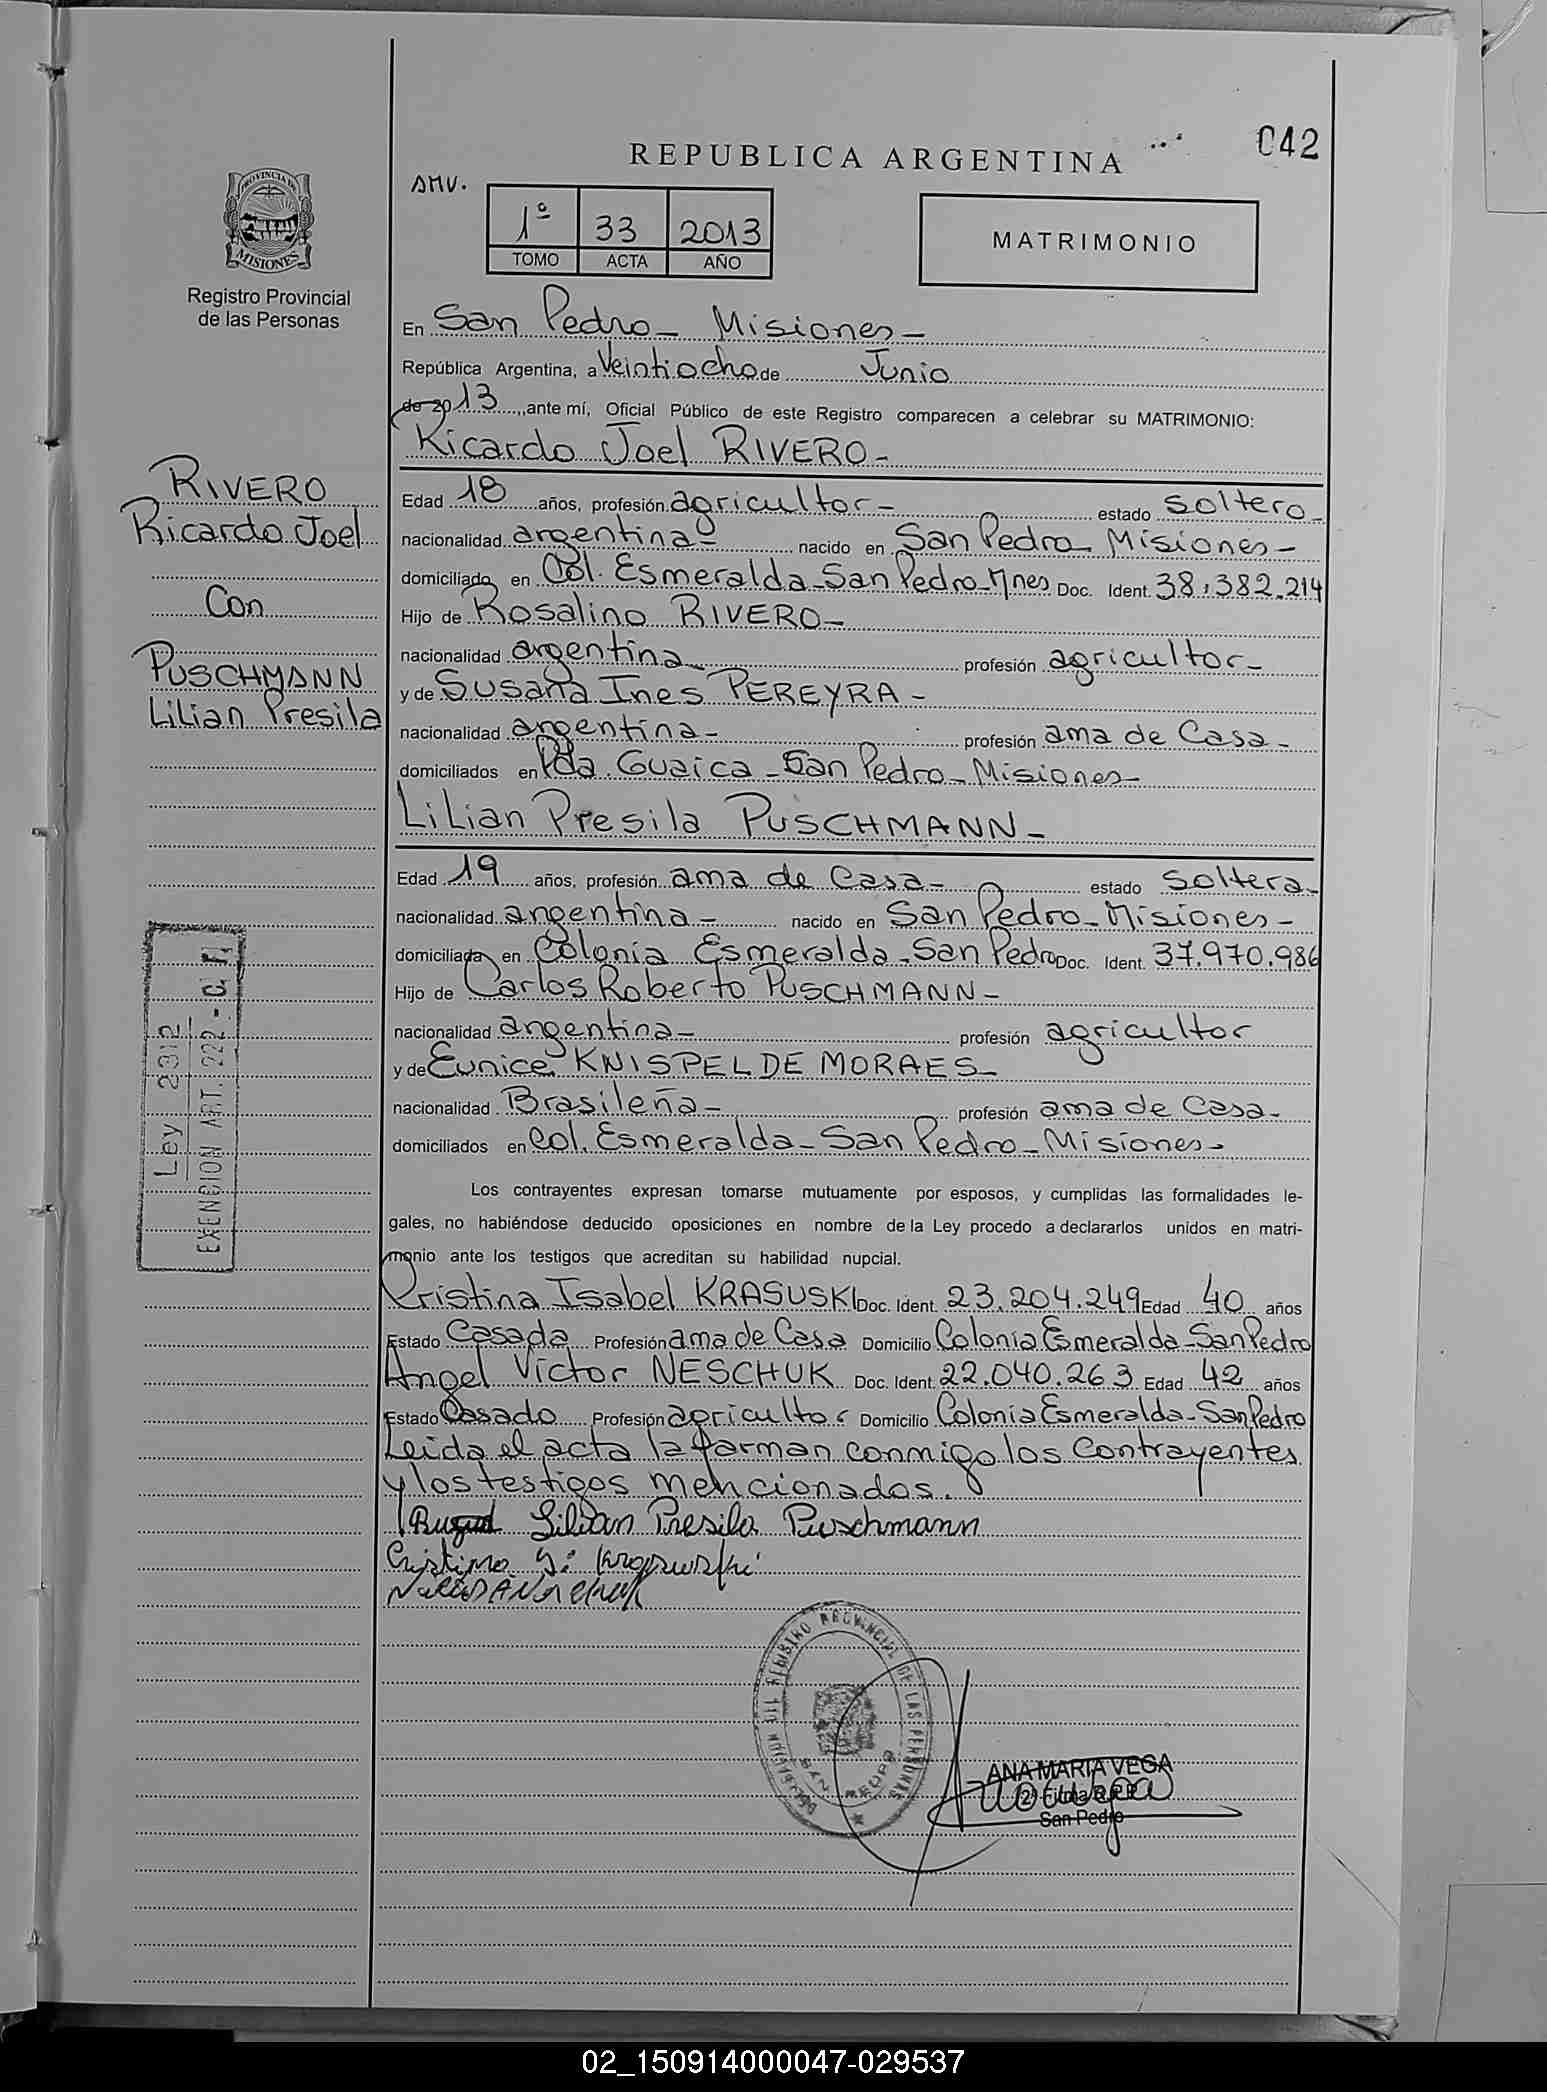 042
REPUBLICA ARGENTINA
AMV.
1º 33 2013
TOMO ACTA AÑO
MATRIMONIO
PROVINCIA DE
MISIONES
Registro Provincial
de las Personas
En San Pedro - Misiones -
República Argentina, a Veintiocho de Junio
de 2013, ante mí, Oficial Público de este Registro comparecen a celebrar su MATRIMONIO:
Ricardo Joel RIVERO -
RIVERO
Ricardo Joel
Con
PUSCHMANN
Lilian Presila
Edad 18 años, profesión agricultor - estado Soltero -
nacionalidad argentina - nacido en San Pedro Misiones -
domiciliado en Col. Esmeralda - San Pedro - Mnes Doc. Ident. 38.382.214
Hijo de Rosalino RIVERO -
nacionalidad argentina profesión agricultor -
y de Susana Ines PEREYRA -
nacionalidad argentina - profesión ama de Casa -
domiciliados en Pda. Guaica - San Pedro - Misiones -
Lilian Presila PUSCHMANN -
Edad 19 años, profesión ama de Casa - estado Soltera -
nacionalidad argentina - nacido en San Pedro - Misiones -
domiciliada en Colonia Esmeralda - San Pedro Doc. Ident. 37.970.986
Hijo de Carlos Roberto PUSCHMANN -
nacionalidad argentina - profesión agricultor
y de Eunice KNISPEL DE MORAES -
nacionalidad Brasileña - profesión ama de Casa -
domiciliados en Col. Esmeralda - San Pedro - Misiones -
Ley 2312
EXENCION ART. 222 - C. F.
Los contrayentes expresan tomarse mutuamente por esposos, y cumplidas las formalidades le-
gales, no habiéndose deducido oposiciones en nombre de la Ley procedo a declararlos unidos en matri-
monio ante los testigos que acreditan su habilidad nupcial.
Cristina Isabel KRASUSKI Doc. Ident. 23.204.249 Edad 40 años
Estado Casada Profesión ama de Casa Domicilio Colonia Esmeralda - San Pedro
Angel Victor NESCHUK Doc. Ident. 22.040.263 Edad 42 años
Estado Casado Profesión agricultor Domicilio Colonia Esmeralda - San Pedro
Leida el acta la forman conmigo los Contrayentes
y los testigos mencionados.
Lilian Presila Puschmann
Cristina
REGISTRO PROVINCIAL DE LAS PERSONAS
SAN PEDRO
ANA MARIA VEGA
San Pedro
02_150914000047-029537